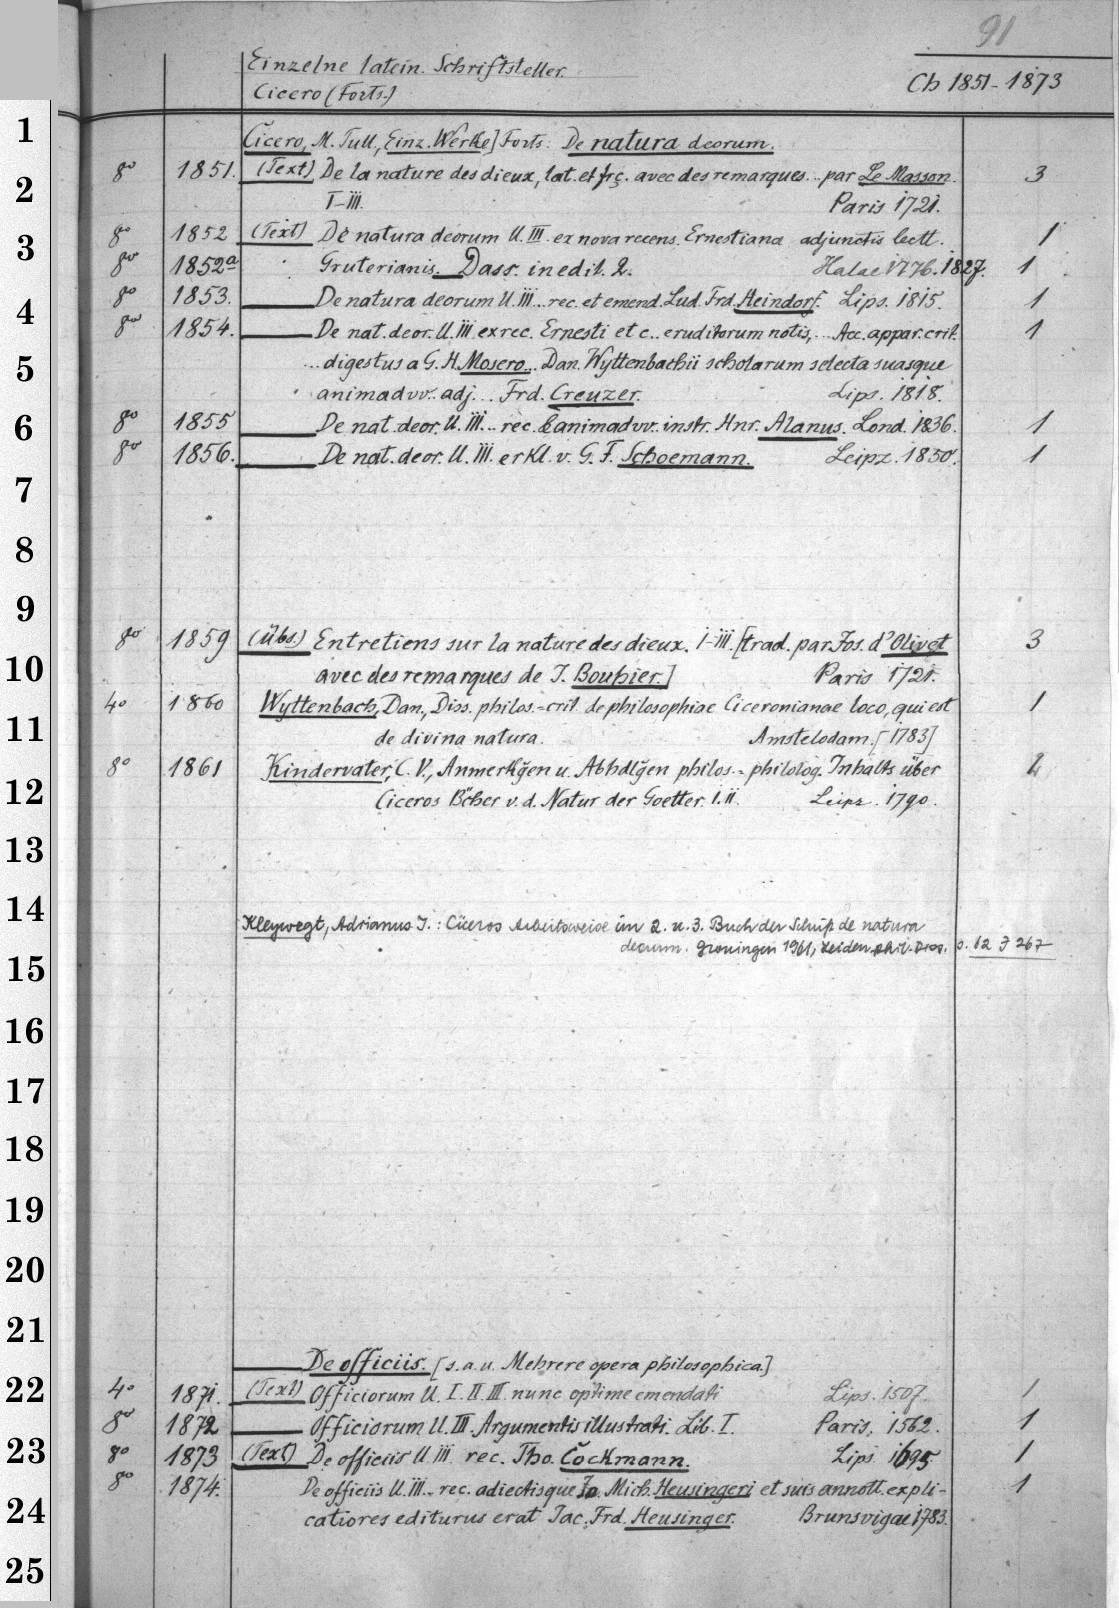 91
Einzelne latein. Schriftsteller.
Cicero (Forts.)
Ch 1851-1873
1
Cicero, M. Tull, Einz. Werke] Forts: De natura deorum.
8° 1851. (Text) De la nature des dieux, lat. et frç. avec des remarques... par Le Masson. 3
2
I-III. Paris 1721.
8° 1852 (Text) De natura deorum ll. III ex nova recens. Ernestiana adjunctis lectt. 1
3
8° 1852a Gruterianis. Dass. in edit. 2. Halae 1776. 1827. 1
8° 1853. De natura deorum ll. III... rec. et emend. Lud. Frd. Heindorf. Lips. 1815. 1
4
8° 1854. De nat. deor. ll. III ex rec. Ernesti etc.. eruditorum notis,... Acc. appar. crit. 1
5
...digestus a G. H. Mosero... Dan. Wyttenbachii scholarum selecta suasque
animadvv. adj... Frd. Creuzer. Lips. 1818.
6
8° 1855 De nat. deor. ll. III... rec. & animadvv. instr. Hnr. Alanus. Lond. 1836. 1
8° 1856. De nat. deor. ll. III. erkl. v. G. F. Schoemann. Leipz. 1850. 1
7
8
9
8° 1859 (Übs.) Entretiens sur la nature des dieux. I-III. [trad. par Jos. d'Olivet 3
10
avec des remarques de J. Bouhier.] Paris 1721.
4° 1860 Wyttenbach, Dan., Diss. philos.-crit. de philosophiae Ciceronianae loco, qui est 1
11
de divina natura. Amstelodam. [1783]
8° 1861 Kindervater, C. V., Anmerkg̃en u. Abhdlg̃en philos.-philolog. Inhalts über 2
12
Ciceros Bcher v. d. Natur der Goetter. I. II. Leipz. 1790.
13
14
Kleywegt, Adrianus J.: Ciceros Arbeitsweise im 2. u. 3. Buch der Schrift de natura
deorum. Groningen 1961, Leiden, phil. Diss. s. 12 J 267
15
16
17
18
19
20
21
De officiis. [s. a. u. Mehrere opera philosophica]
22
4° 1871. (Text) Officiorum ll. I. II. III. nunc optime emendati Lips. 1507. 1
8° 1872 Officiorum ll. III. Argumentis illustrati. Lib. I. Paris. 1562. 1
23
8° 1873 (Text) De officiis ll. III. rec. Tho. Cockmann. Lips. 1695 1
8° 1874. De officiis ll. III... rec. adiectisque Jo. Mich. Heusingeri et suis annott. expli- 1
24
catiores editurus erat Jac. Frd. Heusinger. Brunsvigae 1783.
25